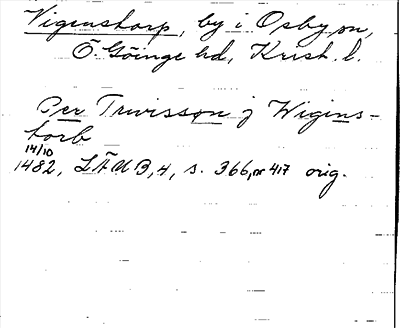 Vigenstorp, by i Osby sn,
Ö. Göinge hd, Krist. l.
Per Truvisson j Wigins-
torb
14/10
1482, LÄUB, 4, s. 366, nr 417 orig.